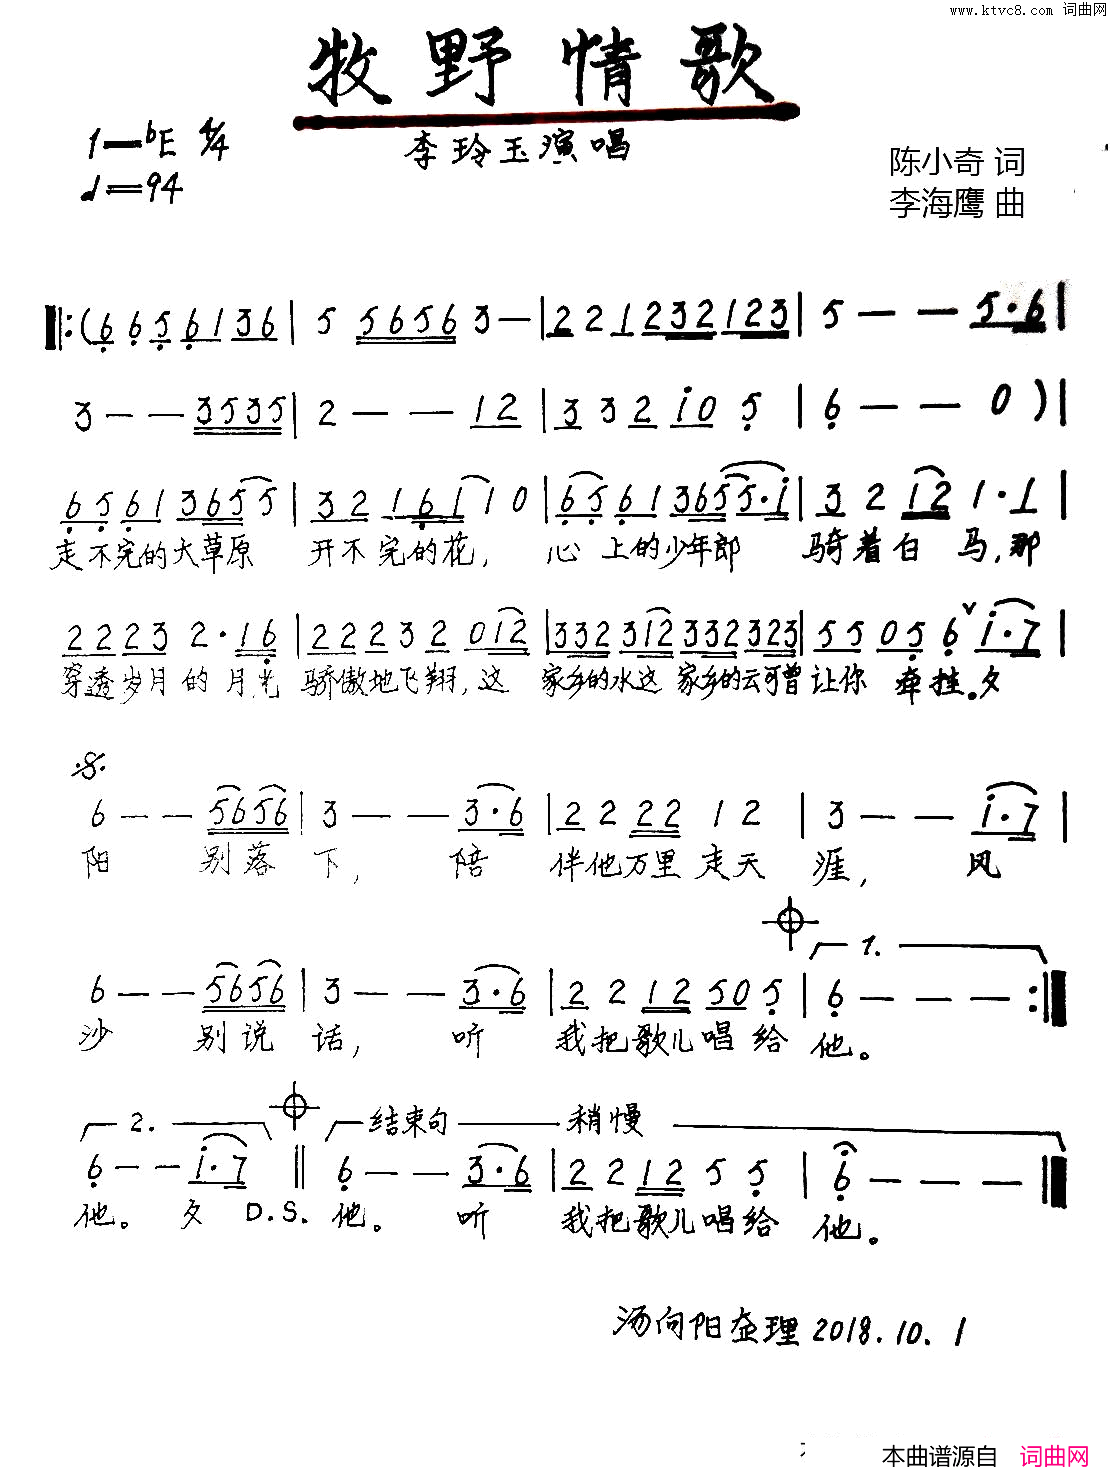 www.ktvc8.com 词曲网
牧野情歌
1=bE 4/4
李玲玉演唱
陈小奇 词
♩=94
李海鹰 曲
‖:(6 6 5 6 1 3 6 | 5 5 6 5 6 3 — | 2 2 1 2 3 2 1 2 3 | 5 — — 5·6 |
3 — — 3 5 3 5 | 2 — — 1 2 | 3 3 2 i 0 5 | 6 — — 0 ) |
6 5 6 1 3 6 5 5 | 3 2 1 6 1 1 0 | 6 5 6 1 3 6 5 5·i | 3 2 1 2 1·1 |
走不完的大草原 开不完的花, 心上的少年郎 骑着白马,那
2 2 2 3 2·1 6 | 2 2 2 3 2 0 1 2 | 3 3 2 3 1 2 3 3 2 3 2 3 | 5 5 0 5 6 ∨ i·7 |
穿透岁月的月光 骄傲地飞翔,这 家乡的水这家乡的云可曾让你牵挂。夕
𝄋
6 — — 5 6 5 6 | 3 — — 3·6 | 2 2 2 2 1 2 | 3 — — i·7 |
阳 别落下, 陪伴他万里走天涯, 风
1.
6 — — 5 6 5 6 | 3 — — 3·6 | 2 2 1 2 5 0 5 | 6 — — — :‖
沙 别说话, 听 我把歌儿唱给他。
2. 结束句 稍慢
6 — — i·7 ‖ 6 — — 3·6 | 2 2 1 2 5 5 | 6 — — — ‖
他。夕 D.S. 他。 听 我把歌儿唱给他。
汤向阳整理 2018.10.1
本曲谱源自 词曲网